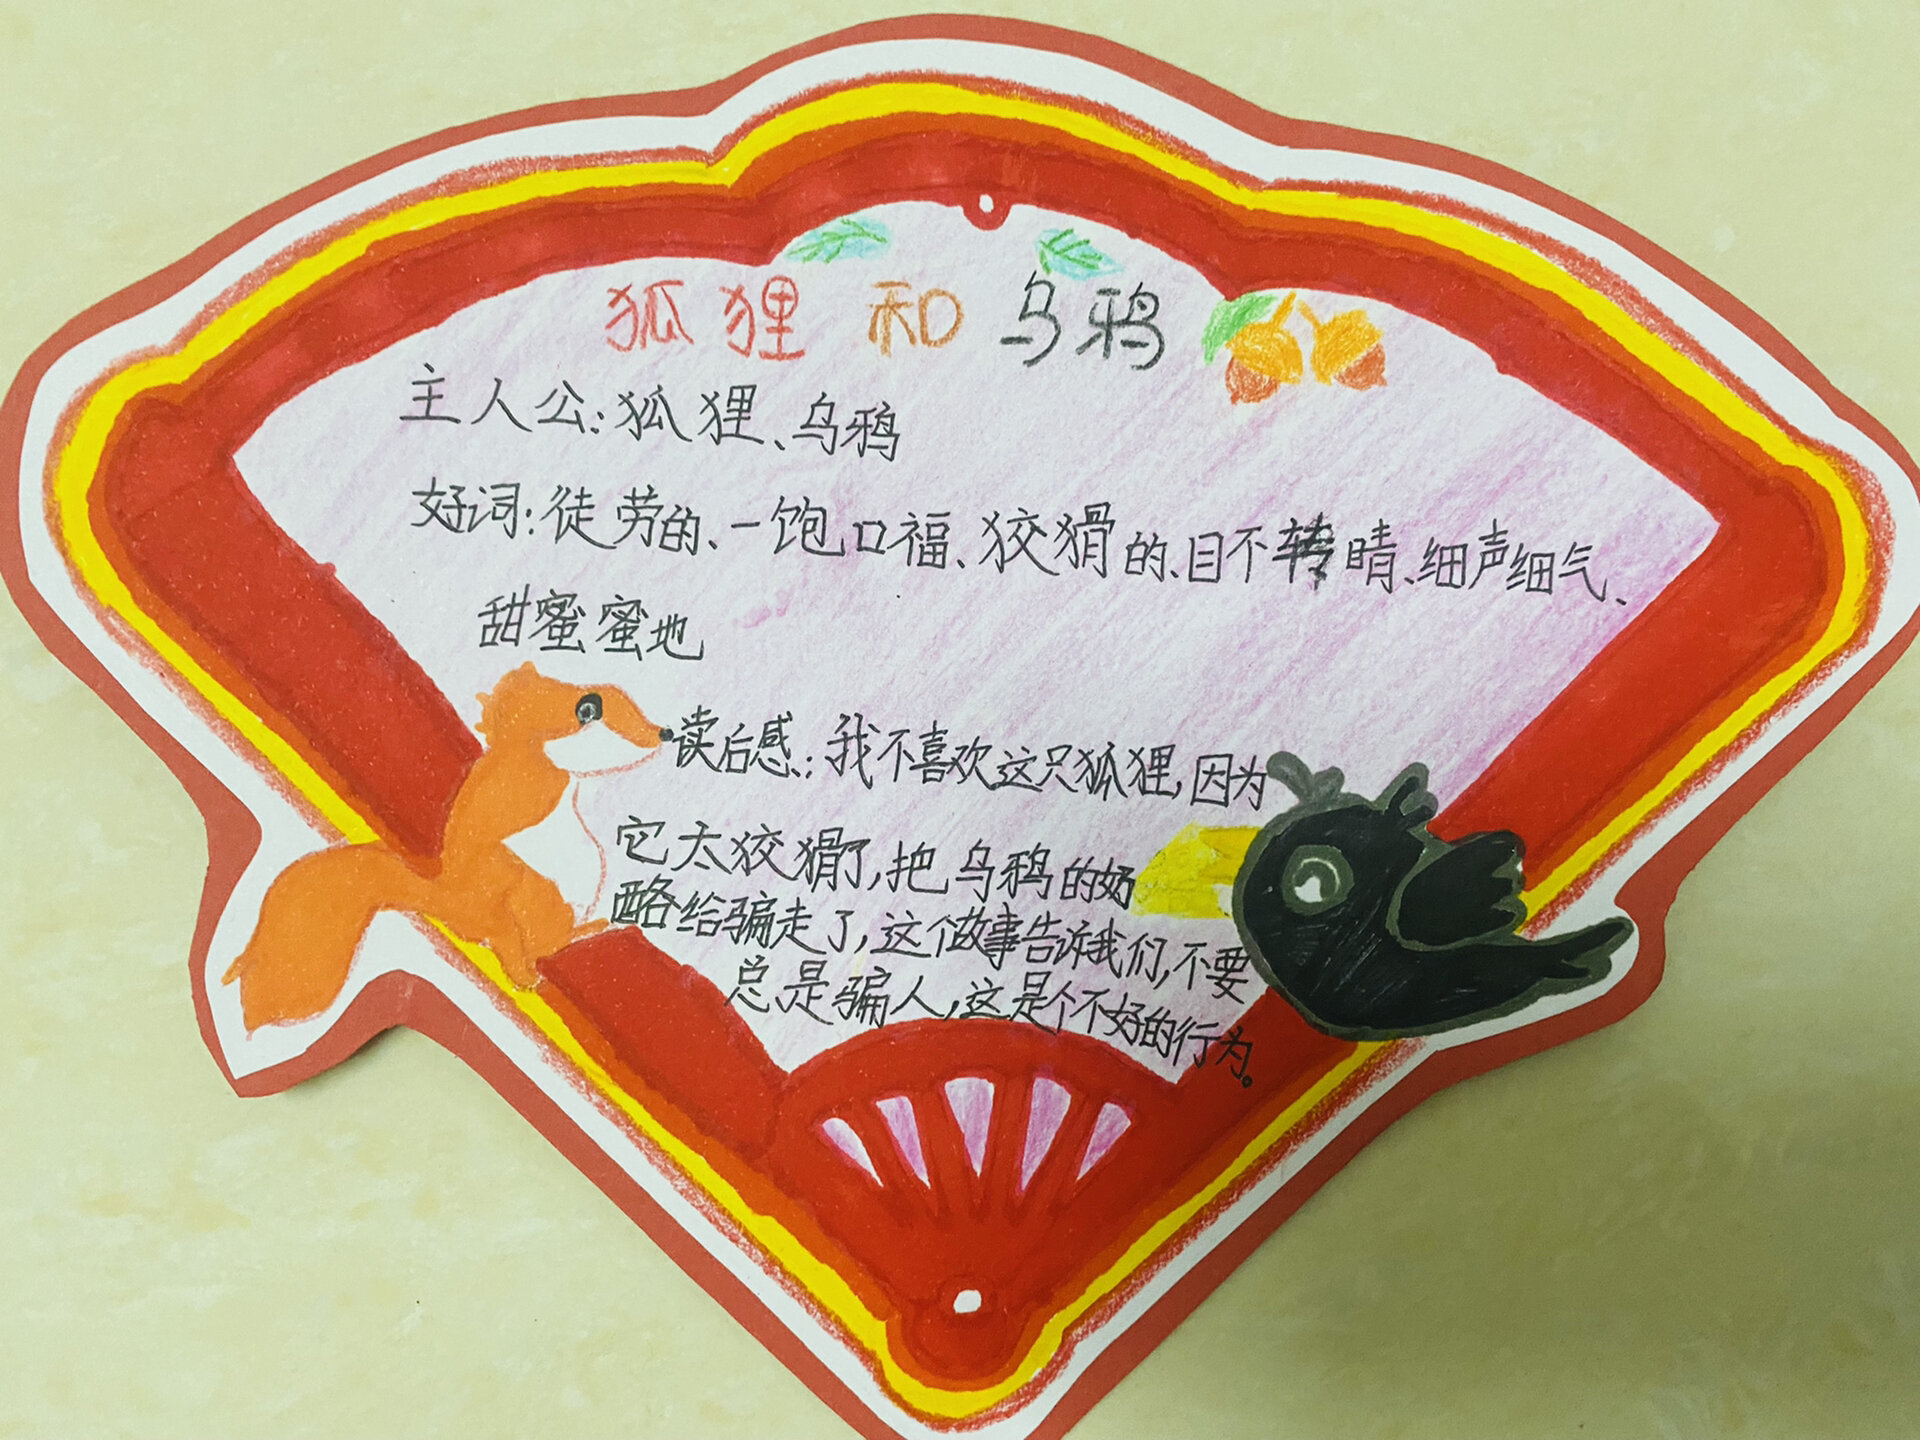 狐狸和乌鸦
主人公:狐狸、乌鸦
好词:徒劳的、一饱口福、狡猾的、目不转晴、细声细气、
甜蜜蜜地
读后感:我不喜欢这只狐狸,因为
它太狡猾了,把乌鸦的奶
酪给骗走了,这个故事告诉我们,不要
总是骗人,这是个不好的行为。